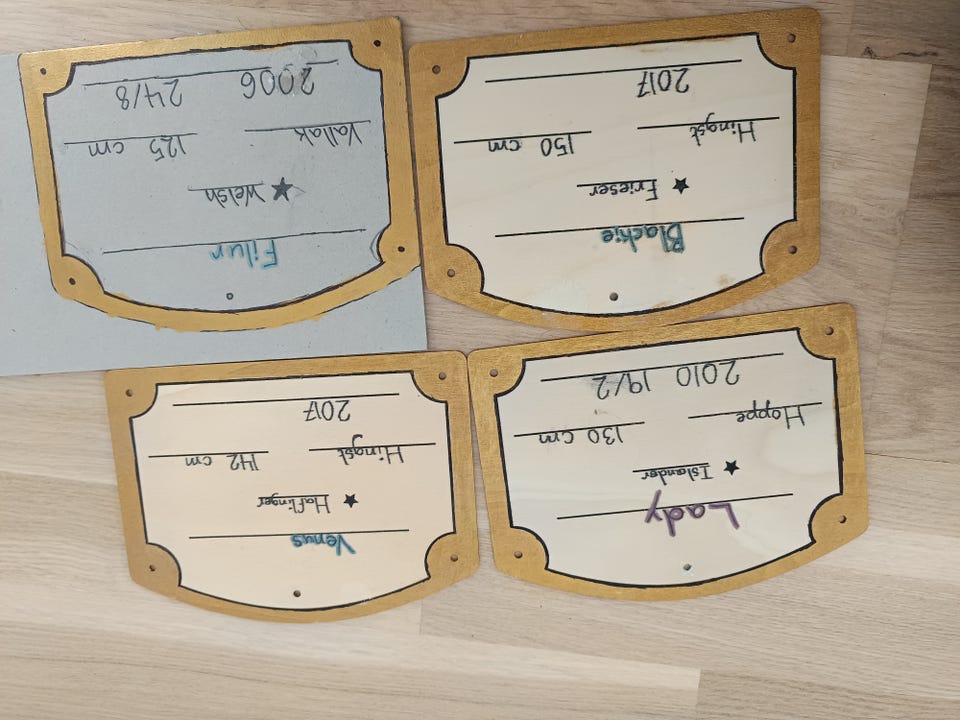 Lady
★ Islander
Hoppe 130 cm
2010 19/2
Venus
★ Haflinger
Hingst 142 cm
2017
Blackie
★ Frieser
Hingst 150 cm
2017
Filur
★ Welsh
Vallak 125 cm
2006 24/8